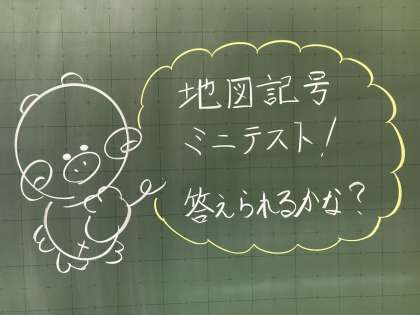 地図記号
ミニテスト!
答えられるかな?